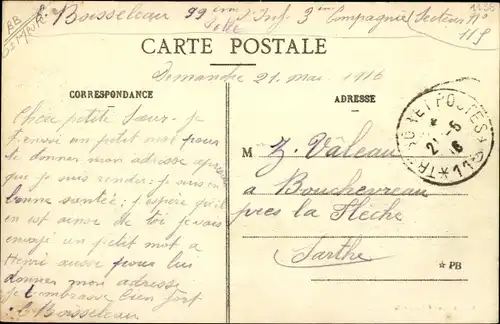 E. Boisseleau 99ème Inf 3ème Compagnie Secteur No 115
CARTE POSTALE
Dimanche 21 Mai 1916
CORRESPONDANCE
ADRESSE
Chère petite Sœur. je
t'envoi un petit mot pour
te donner mon adresse
que je suis rendu. je suis en
bonne santée, j'espère qu'il
en est ainsi de toi je vais
envoyé un petit mot a
Henri aussi pour lui
donner mon adresse
je t'embrasse bien fort
E. Boisseleau
M Z. Vâleau
a Bouchevreau
près la Flèche
Sarthe
TRESOR ET POSTES
2 -5
16
* PB